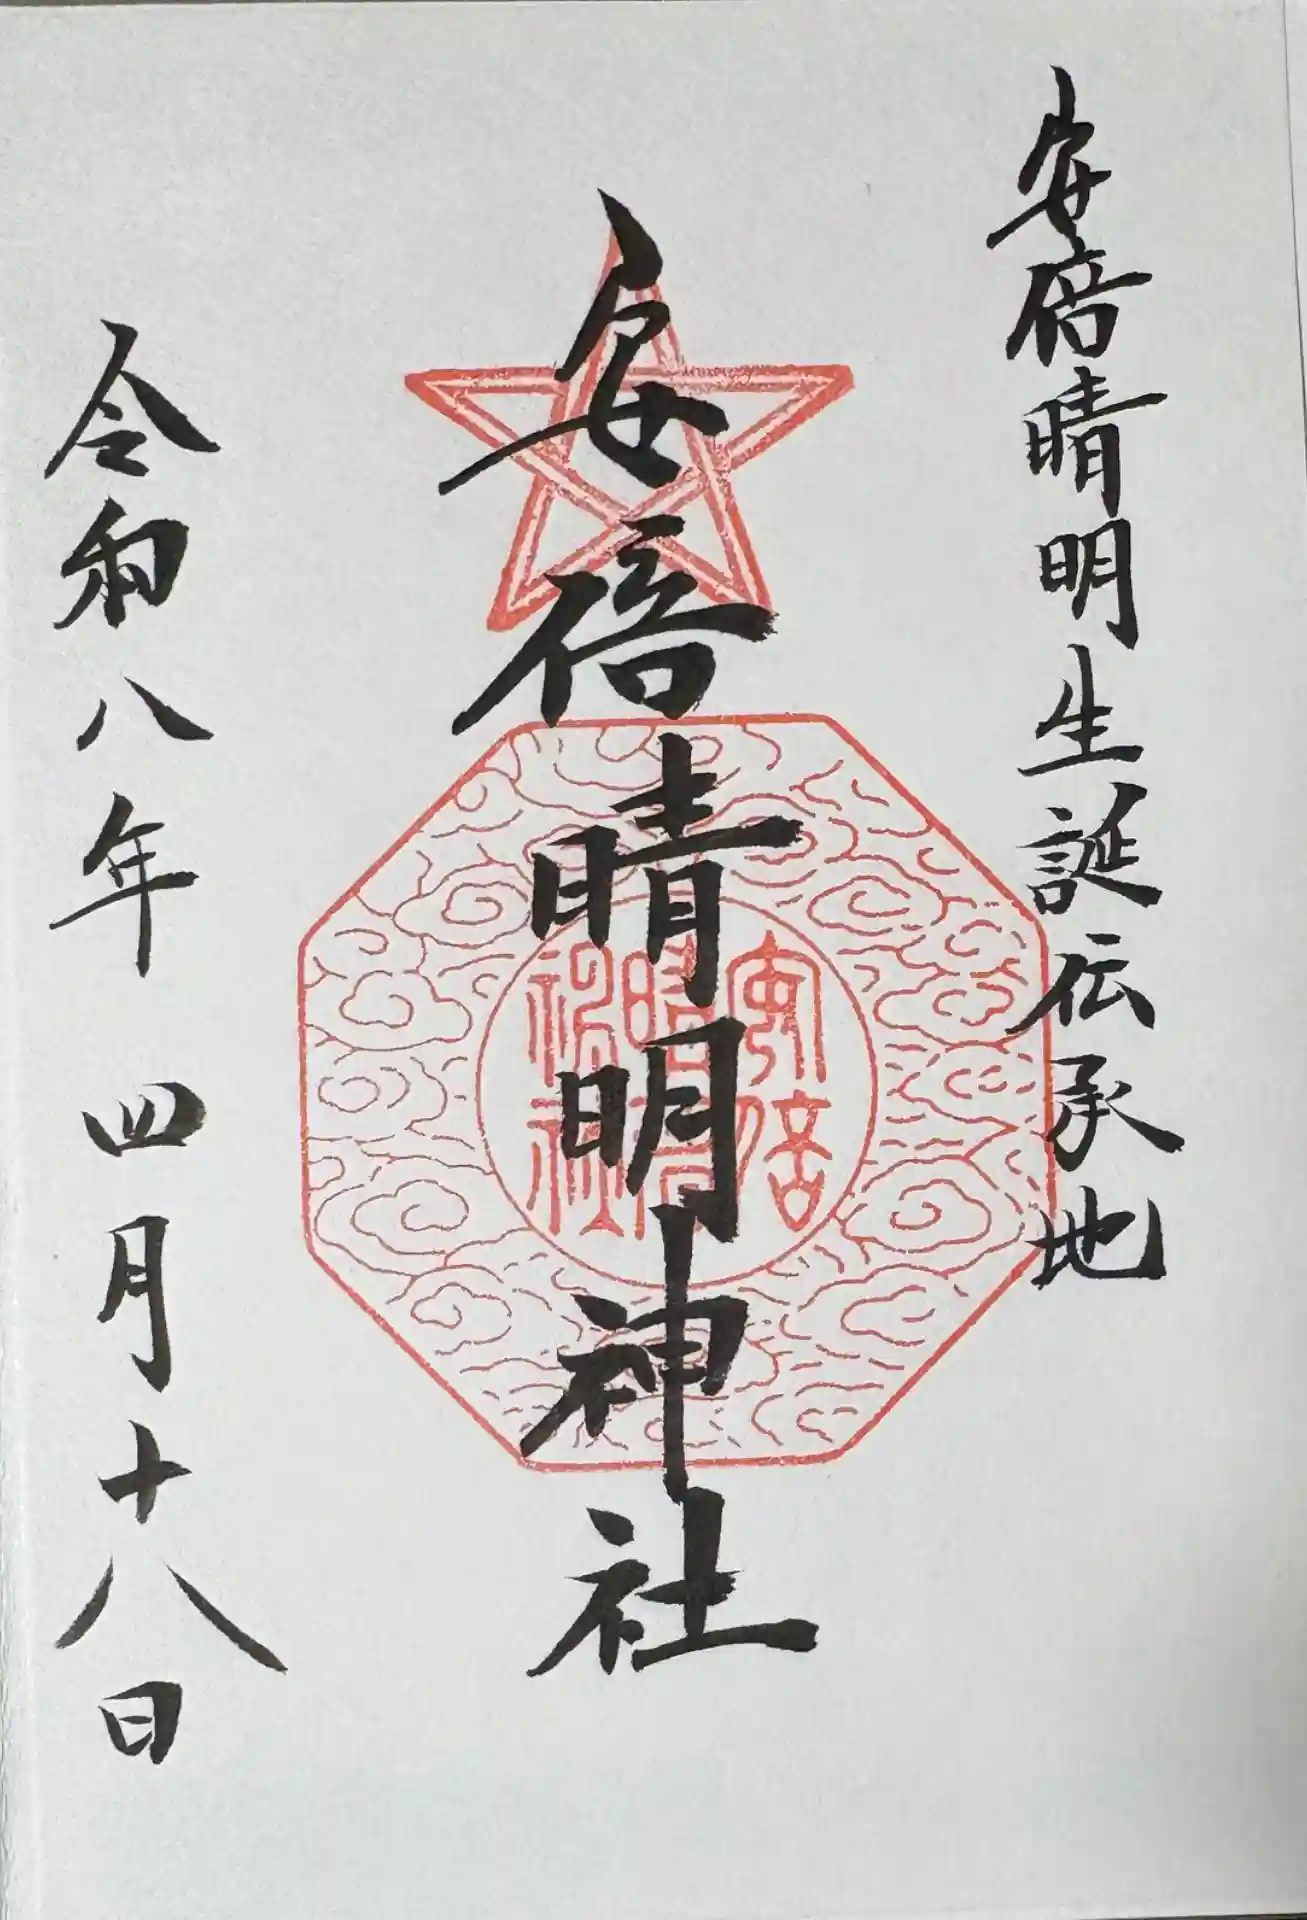 安倍晴明生誕伝承地
安倍晴明神社
安倍
晴明
神社
令和八年 四月十八日